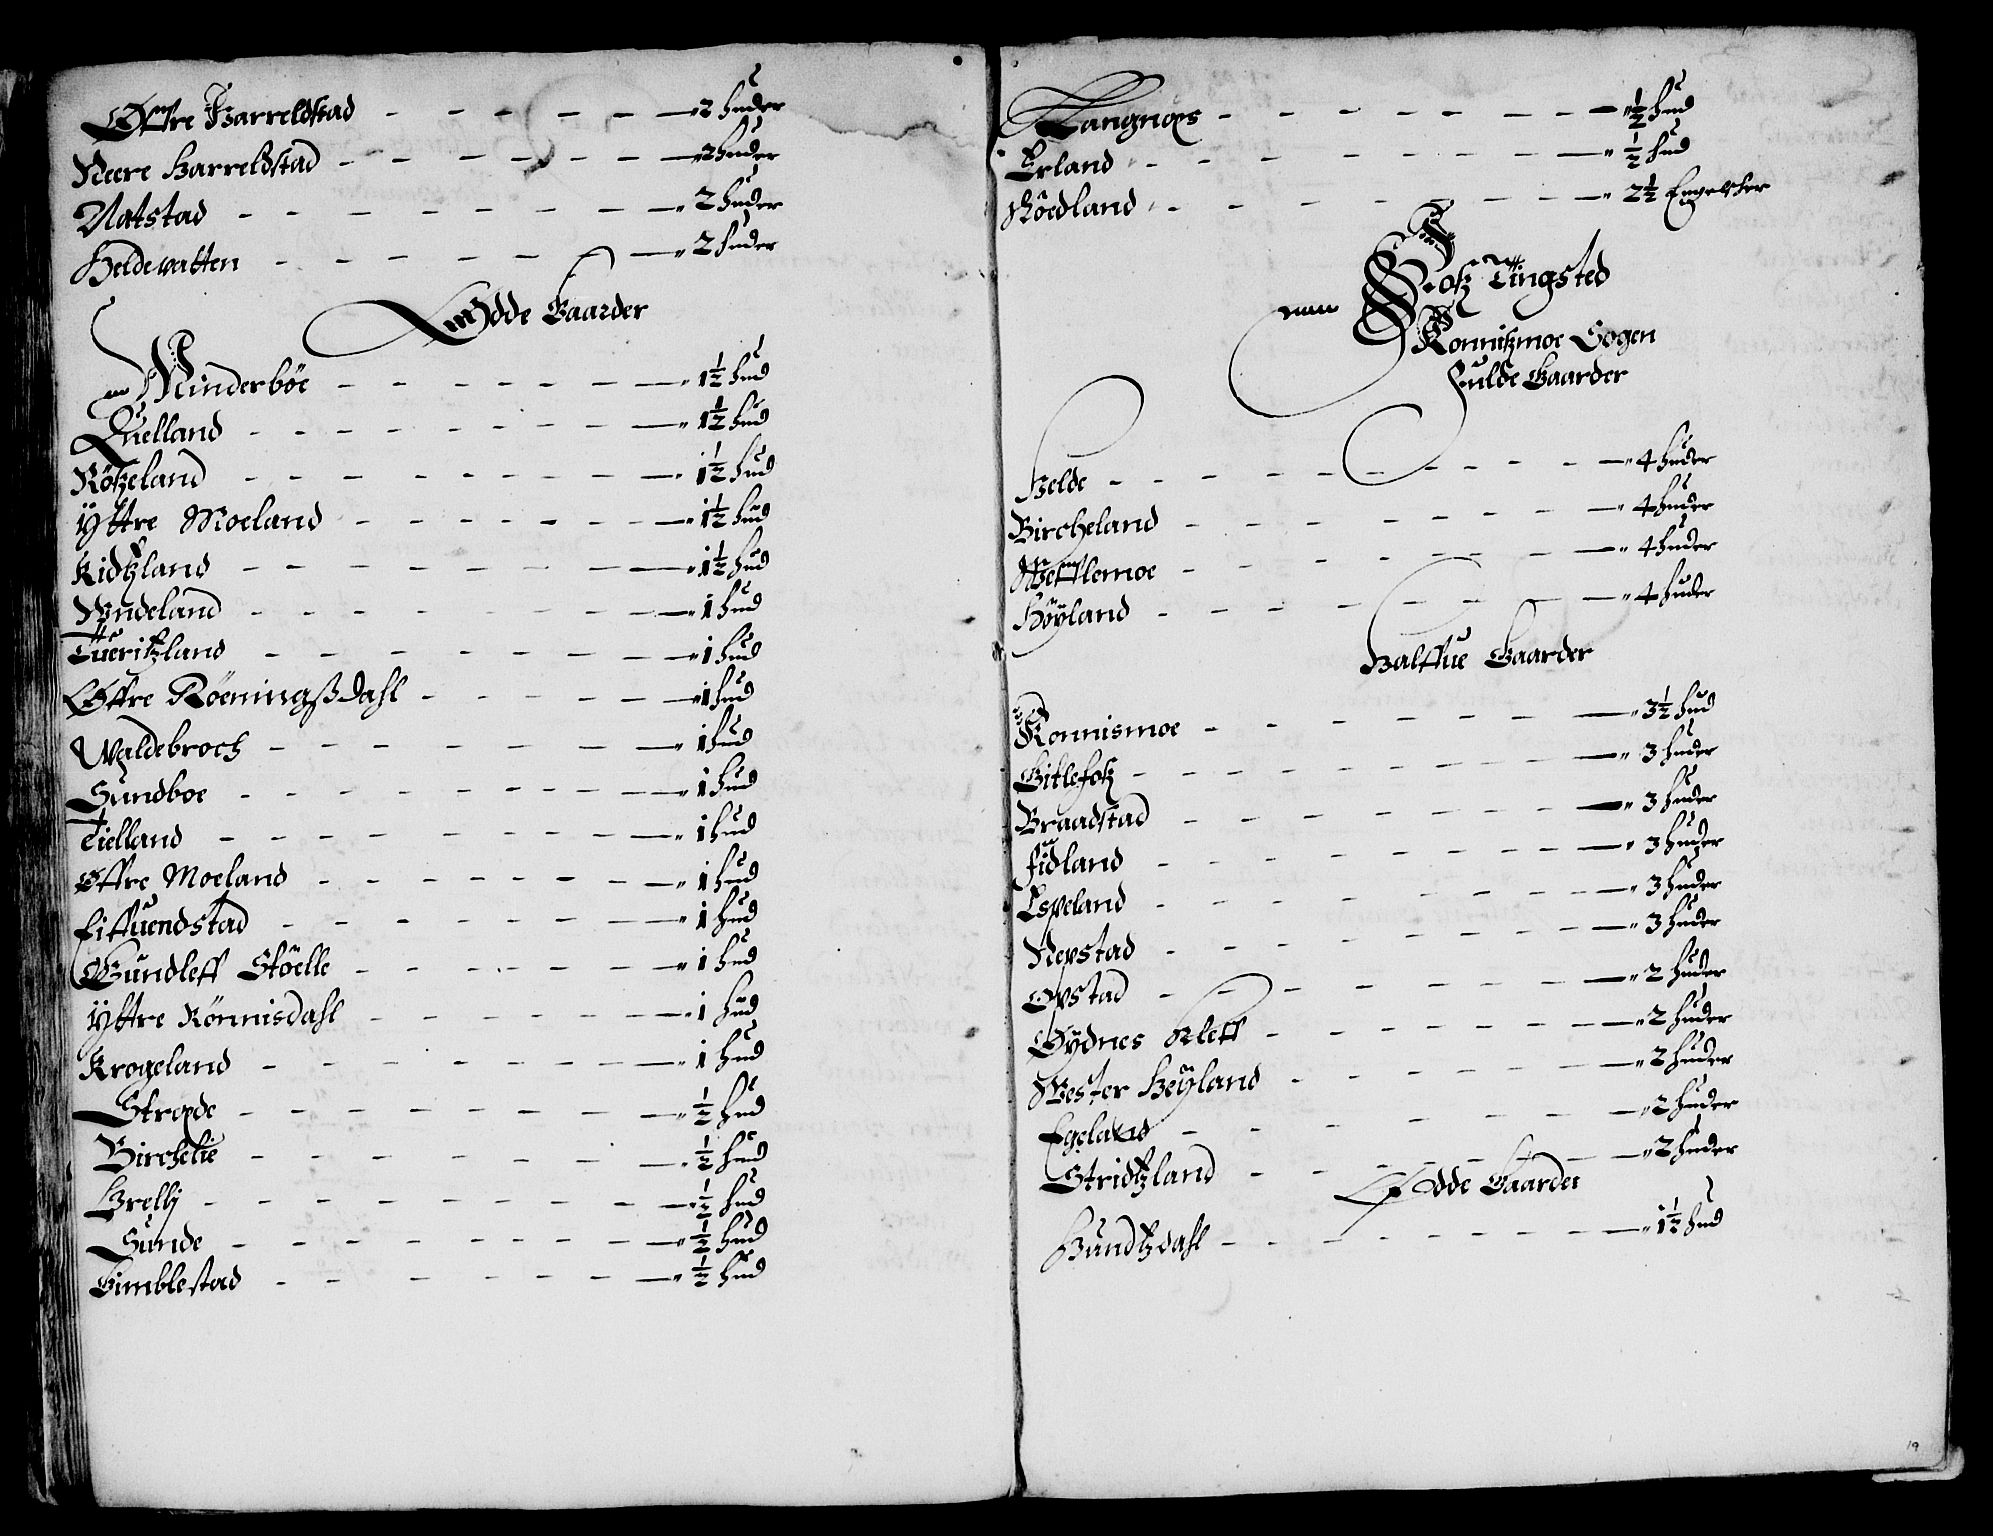 Øffre Harreldstad - - - - - - 2 huder
Neere Harreldstad - - - - - - 2 huder
Natstad - - - - - - - - 2 huder
Heldevatten - - - - - - - 2 huder
Ødde Gaarder
Minderbøe - - - - - - - 1½ hud
Quelland - - - - - - - - 1½ hud
Røtzeland - - - - - - - - 1½ hud
Yttre Moeland - - - - - - 1½ hud
Kidtzland - - - - - - - - 1½ hud
Undeland - - - - - - - - 1 hud
Tueritzland - - - - - - - 1 hud
Øffre Røeningßdahl - - - - - 1 hud
Waldebroch - - - - - - - 1 hud
Sundboe - - - - - - - - 1 hud
Tielland - - - - - - - - 1 hud
Øffre Moeland - - - - - - 1 hud
Eiffuendstad - - - - - - - 1 hud
Gundleff Støelle - - - - - - 1 hud
Yttre Rønnisdahl - - - - - - 1 hud
Krogeland - - - - - - - - 1 hud
Strøde - - - - - - - - ½ hud
Birchelie - - - - - - - - ½ hud
Brelly - - - - - - - - - ½ hud
Sunde - - - - - - - - ½ hud
Gimblestad - - - - - - - ½ hud
Langnøes - - - - - - - - ½ hud
Erland - - - - - - - - - ½ hud
Røedland - - - - - - - - 2½ Engelsker
Foß Tingsted
Konnitzmoe Sogen
Fulde Gaarder
Helde - - - - - - - - - 4 huder
Bircheland - - - - - - - - 4 huder
Wefflemoe - - - - - - - - 4 huder
Høyland - - - - - - - - - 4 huder
Halffue Gaarder
Konnismoe - - - - - - - 3½ hud
Gitlefoß - - - - - - - - 3 huder
Braadstad - - - - - - - - 3 huder
Fidland - - - - - - - - 3 huder
Espeland - - - - - - - - 3 huder
Nepstad - - - - - - - - 3 huder
Opstad - - - - - - - - 2 huder
Øydnes Kleff - - - - - - 2 huder
Wester Heyland - - - - - - 2 huder
Egeland - - - - - - - - 2 huder
Stridtzland - - - - - - - 2 huder
Ødde Gaarder
Hundtzdahl - - - - - - - 1½ hud
19